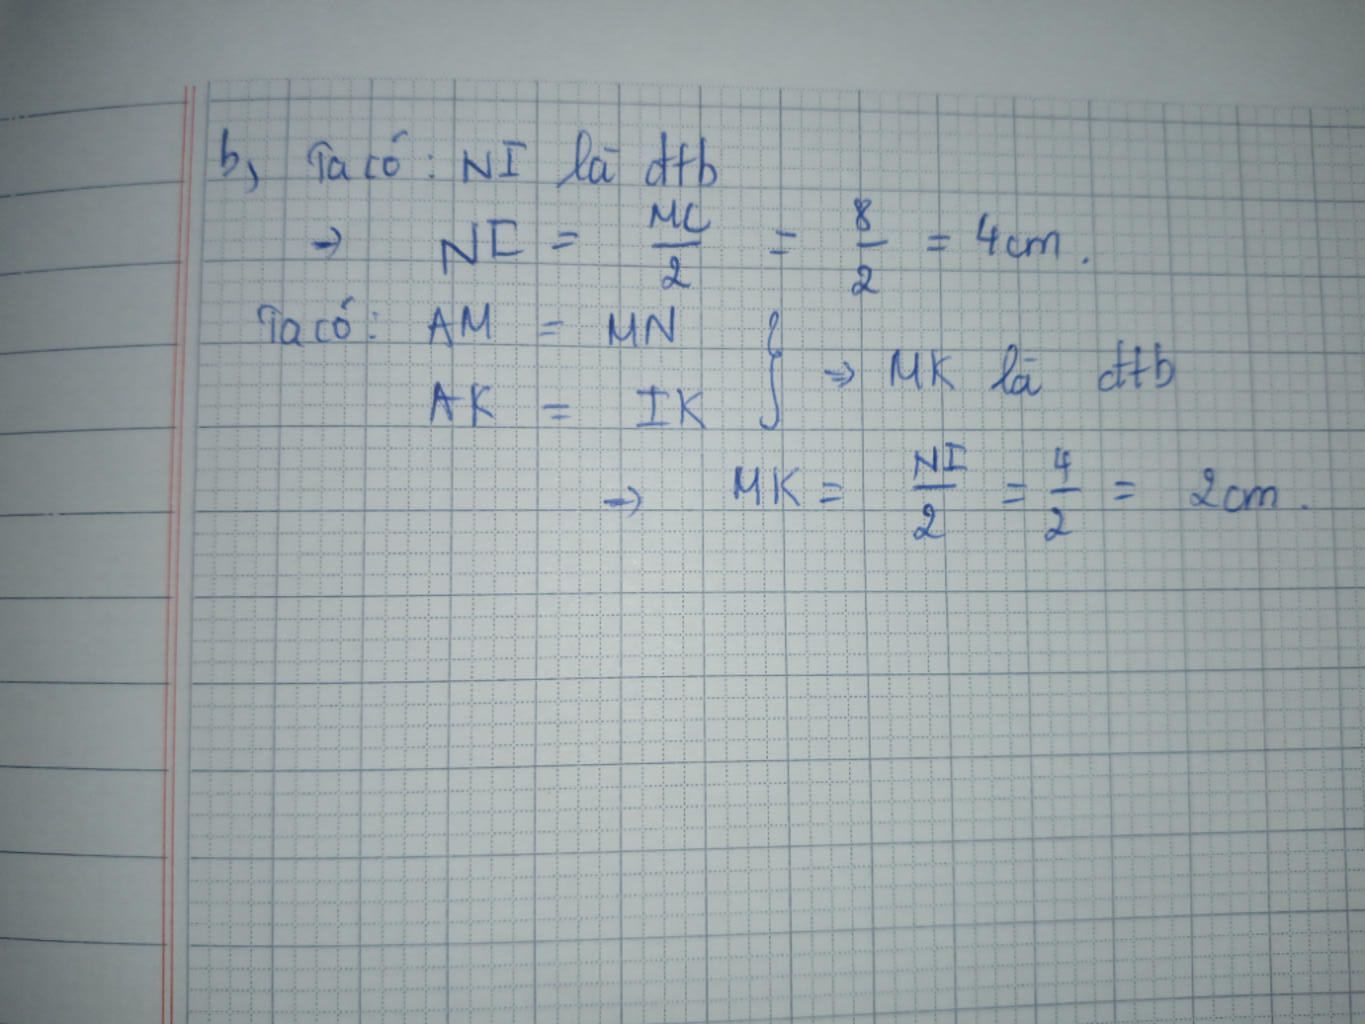 b, Ta có : NI là đtb
→ NI = MC/2 = 8/2 = 4cm.
Ta có : AM = MN
AK = IK } → MK là đtb
→ MK = NI/2 = 4/2 = 2cm.